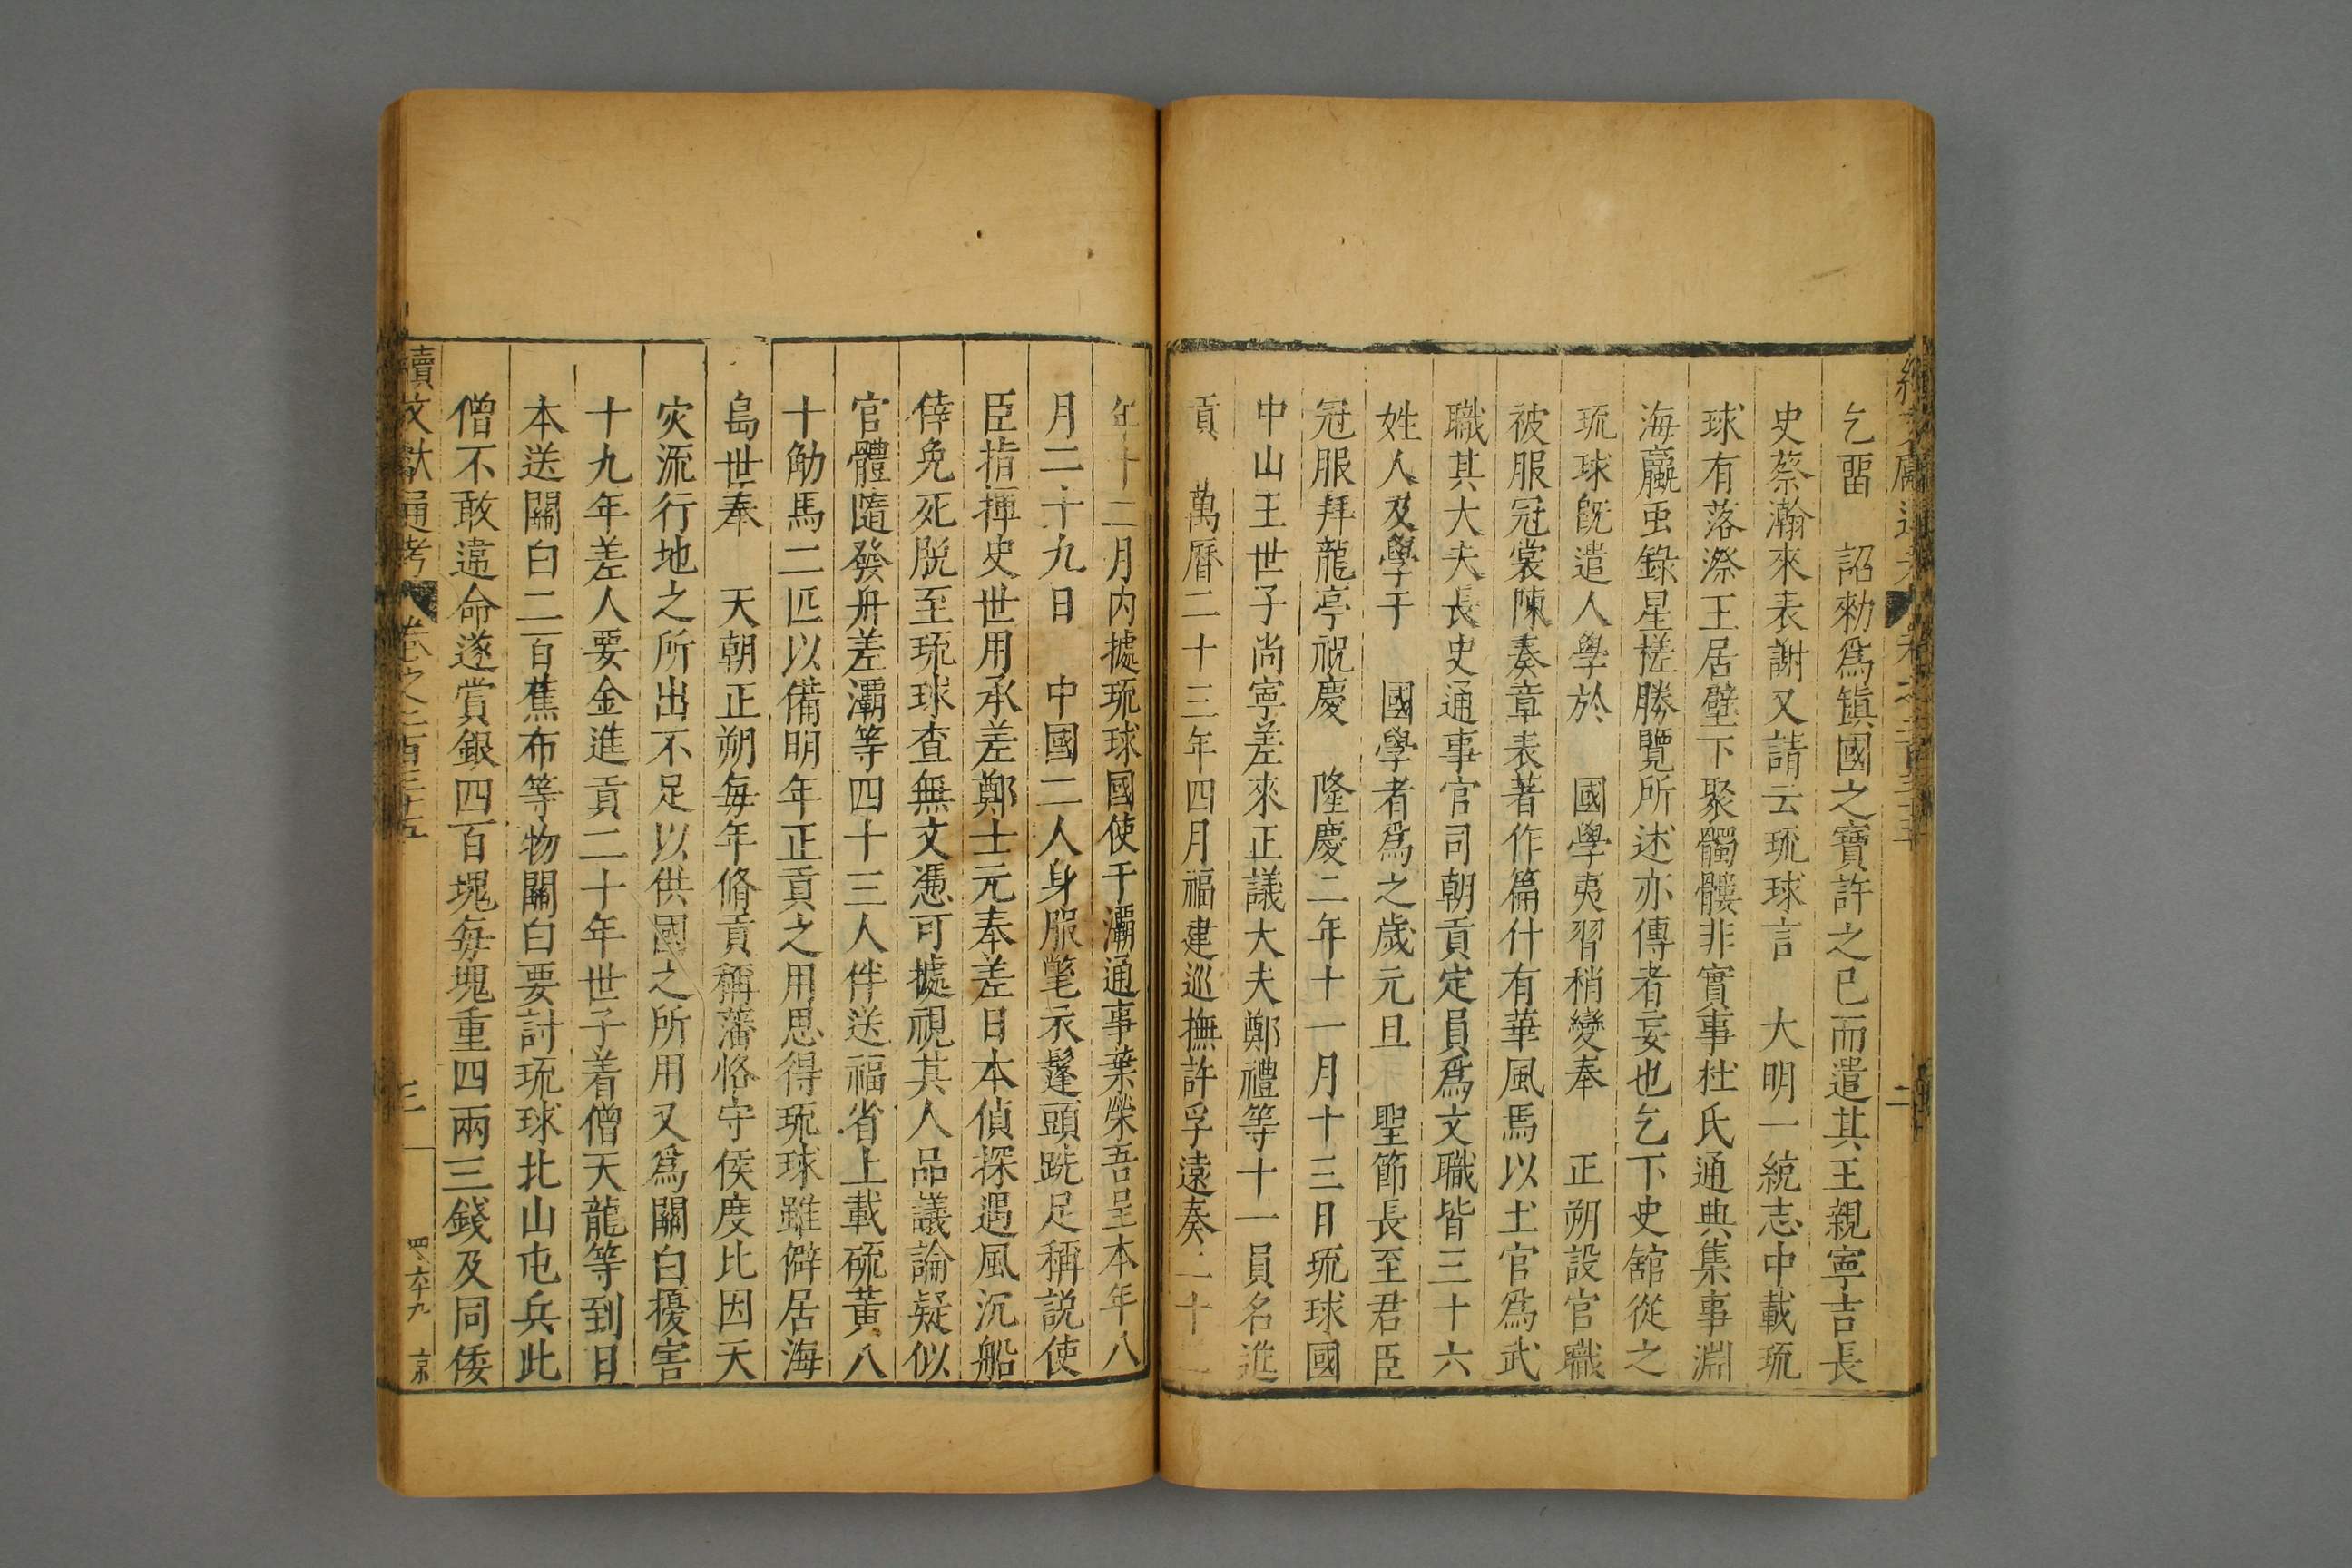 乞畱　詔勑爲鎭國之寶許之已而遣其王親寕吉長
史蔡瀚來表謝又請云琉球言　大明一統志中載琉
球有落漈王居壁下聚髑髏非實事杜氏通典集事淵
海蠃虫錄星槎勝覽所述亦傳者妄也乞下史舘從之
琉球旣遣人學於　國學夷習稍變奉　正朔設官職
被服冠裳陳奏章表著作篇什有華風馬以土官爲武
職其大夫長史通事官司朝貢定員爲文職皆三十六
姓人及學于　國學者爲之歲元旦　聖節長至君臣
冠服拜龍亭祝慶　隆慶二年十一月十三日琉球國
中山王世子尚寧差來正議大夫鄭禮等十一員名進
貢　萬曆二十三年四月福建巡撫許孚遠奏二十二
年十二月内據琉球國使于灞通事葉榮吾呈本年八
月二十九日　中國二人身服氅示鬔頭跣足稱説使
臣指揮史世用承差鄭士元奉差日本偵探遇風沉船
倖免死脱至琉球查無文憑可據視其人品議論疑似
官體隨發舟差灞等四十三人伴送福省上載硫黃八
十觔馬二匹以備明年正貢之用思得琉球雖僻居海
島世奉　天朝正朔每年脩貢稱藩恪守侯度比因天
灾流行地之所出不足以供國之所用又爲關白擾害
十九年差人要金進貢二十年世子着僧天龍等到日
本送關白二百蕉布等物關白要討琉球北山屯兵此
僧不敢違命遂賞銀四百塊每塊重四兩三錢及同倭
續文獻通考　卷之二百三十五　三　京